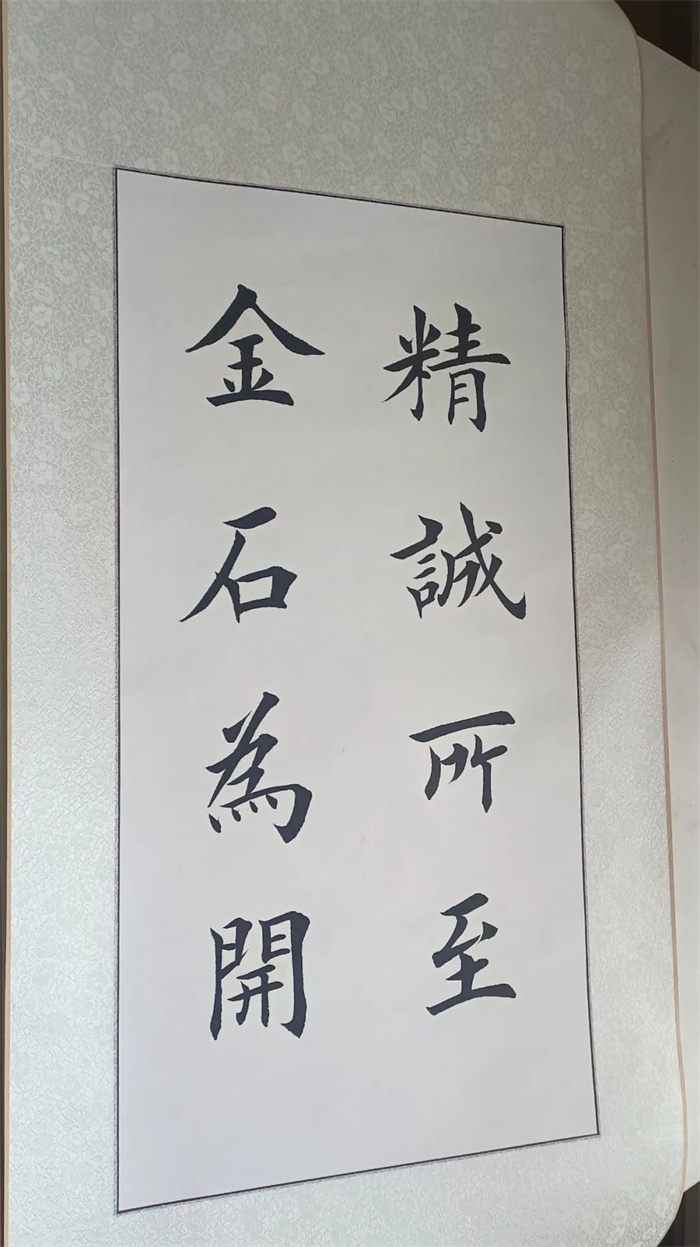 精誠所至
金石為開